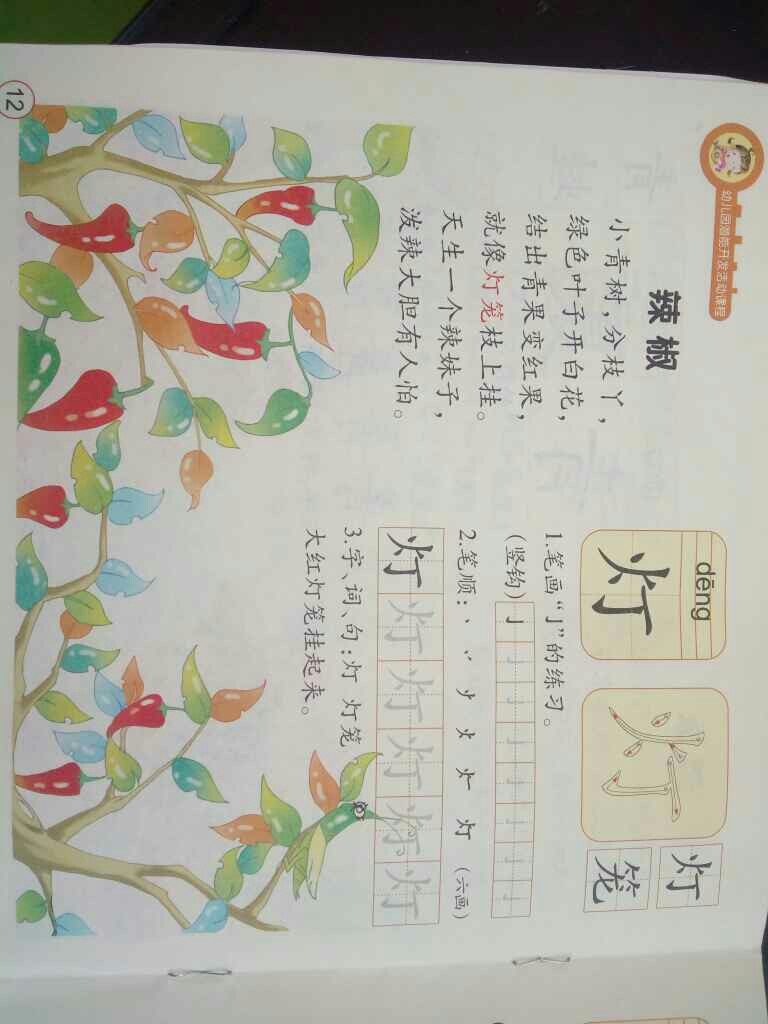 幼儿园潜能开发活动课程
辣椒
小青树，分枝丫，
绿色叶子开白花，
结出青果变红果，
就像灯笼枝上挂。
天生一个辣妹子，
泼辣大胆有人怕。
dēng
灯
灯
灯
笼
1.笔画“亅”的练习。
(竖钩) 亅 亅 亅 亅 亅 亅 亅 亅
2.笔顺：丶 丷 少 火 灯 灯 (六画)
灯 灯 灯 灯 灯 灯
3.字、词、句：灯 灯笼
大红灯笼挂起来。
12